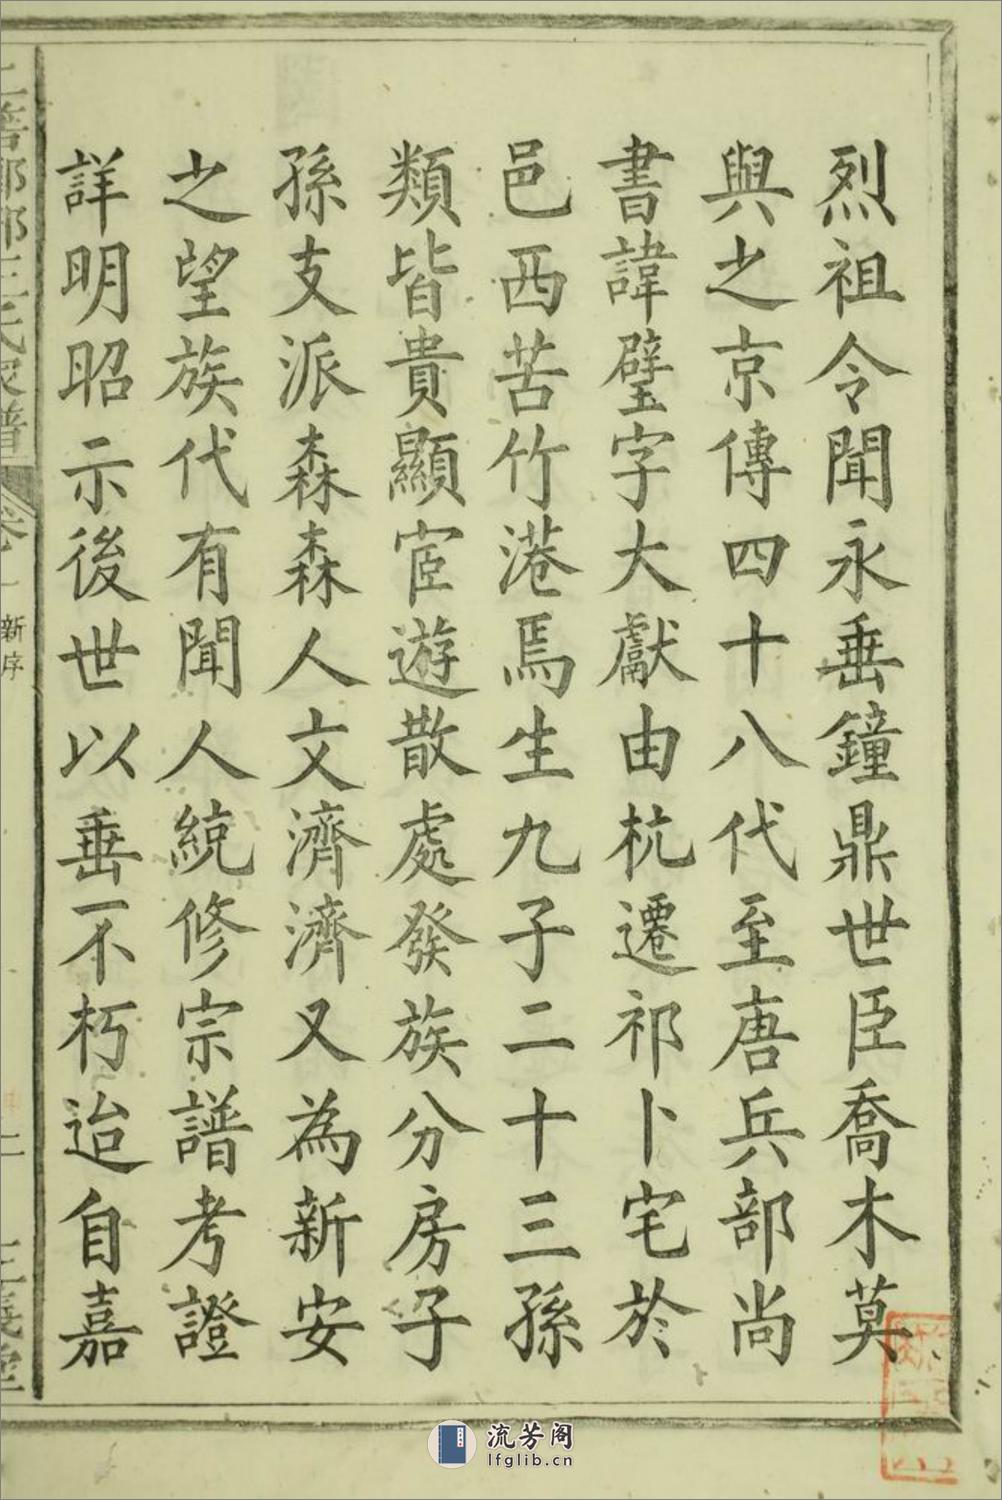 烈祖令聞永垂鐘鼎世臣喬木莫
與之京傳四十八代至唐兵部尚
書諱璧字大獻由杭遷祁卜宅於
邑西苦竹港焉生九子二十三孫
類皆貴顯宦遊散處發族分房子
孫支派森森人文濟濟又為新安
之望族代有聞人統修宗譜考證
詳明昭示後世以垂不朽迨自嘉
王氏
譜
新序
二
流芳阁
lfglib.cn